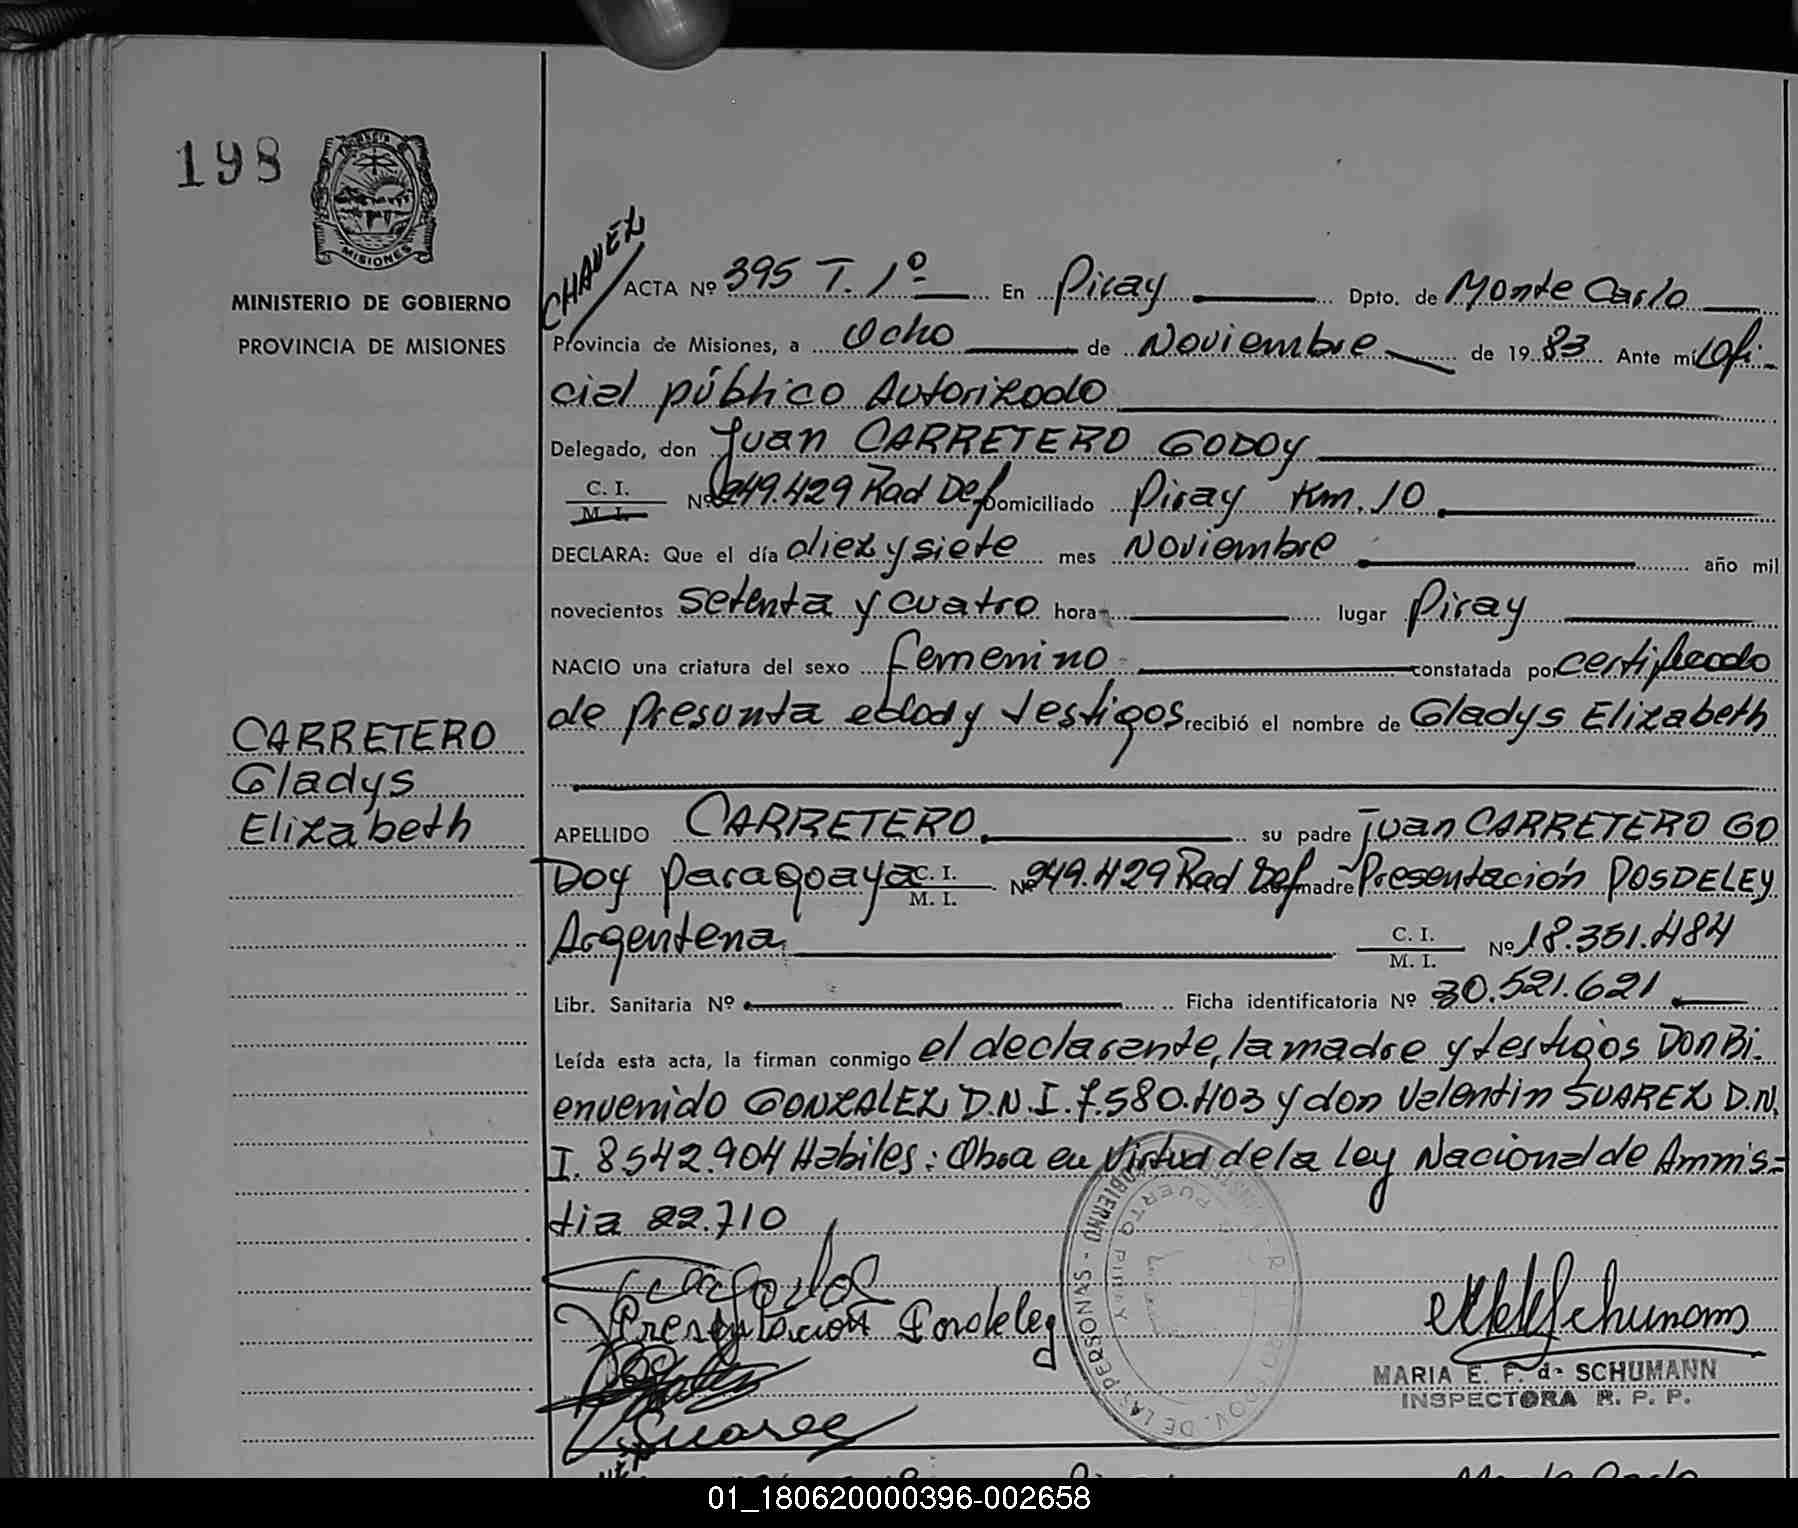 198
MISIONES
MINISTERIO DE GOBIERNO
PROVINCIA DE MISIONES
CHAVEZ
ACTA Nº 395 T. 1º En Piray Dpto. de Monte Carlo
Provincia de Misiones, a Ocho de Noviembre de 1983 Ante mi Ofi-
cial público Autorizado
Delegado, don Juan CARRETERO GODOY
C. I. M. I. Nº 249.429 Rad Def Domiciliado Piray Km. 10
DECLARA: Que el día diez y siete mes Noviembre año mil
novecientos setenta y cuatro hora lugar Piray
NACIO una criatura del sexo femenino constatada por certificado
de presunta edad y testigos recibió el nombre de Gladys Elizabeth
CARRETERO
Gladys
Elizabeth
APELLIDO CARRETERO su padre Juan CARRETERO GO
DOY paraguaya C. I. M. I. Nº 249.429 Rad Def su madre Presentación POSDELEY
Argentena C. I. M. I. Nº 18.351.484
Libr. Sanitaria Nº Ficha identificatoria Nº 30.521.621
Leída esta acta, la firman conmigo el declarante, la madre y testigos Don Bi-
envenido GONZALEZ D.N.I. 7.580.403 y don Valentin SUAREZ D.N.
I. 8.542.904 Habiles: Obra en virtud de la Ley Nacional de Amnis-
tia 22.710
Presentacion Posdeley
Suarez
MARIA E. F. de SCHUMANN
INSPECTORA R. P. P.
01_180620000396-002658